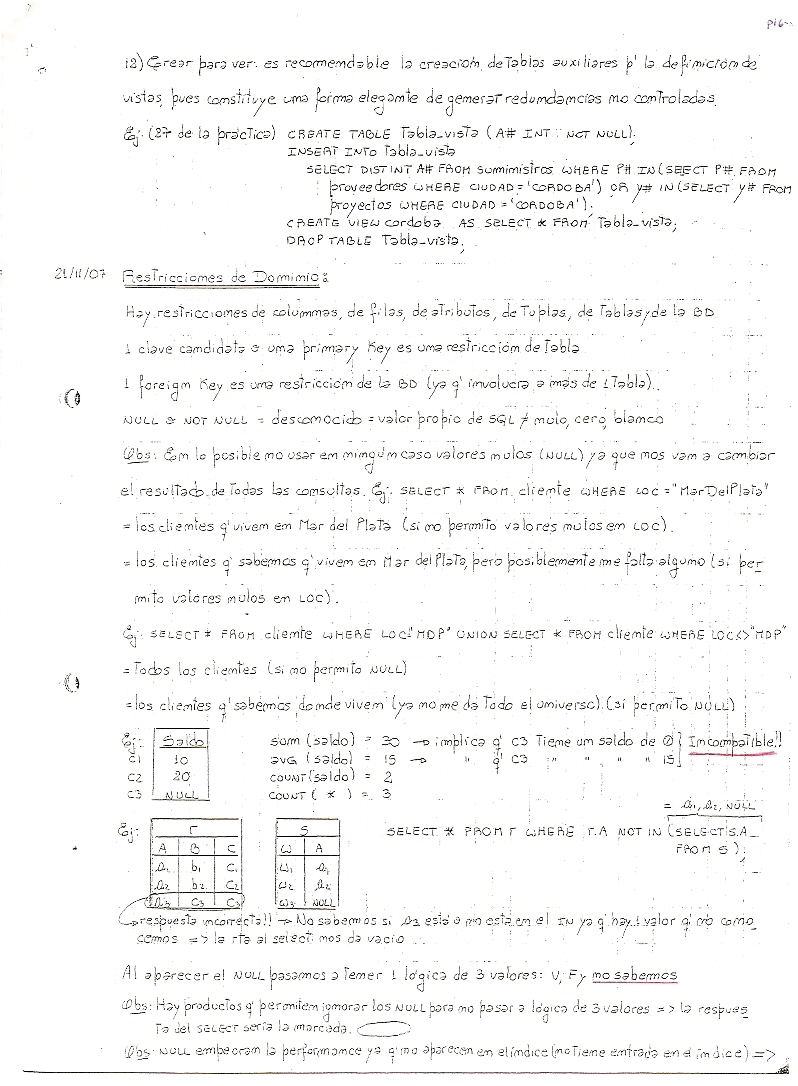 P16
12) Crear para ver: es recomendable la creación de Tablas auxiliares p' la definición de
vistas, pues constituye una forma elegante de generar redundancias no controladas.
Ej: (27 de la práctica) CREATE TABLE Tabla_vista (A# INT NOT NULL);
INSERT INTO Tabla_vista
SELECT DISTINT A# FROM suministros WHERE P# IN (SELECT P# FROM
proveedores WHERE CIUDAD = 'CORDOBA') OR y# IN (SELECT y# FROM
proyectos WHERE CIUDAD = 'CORDOBA');
CREATE VIEW cordoba AS SELECT * FROM Tabla_vista;
DROP TABLE Tabla_vista;
21/11/07 Restricciones de Dominio:
Hay restricciones de columnas, de filas, de atributos, de Tuplas, de Tablas y de la BD
1 clave candidata o una primary Key es una restricción de Tabla
1 foreign Key es una restricción de la BD (ya q' involucra a más de 1 Tabla).
NULL & NOT NULL = desconocido = valor propio de SQL ≠ nulo, cero, blanco
Obs: En lo posible no usar en ningún caso valores nulos (NULL) ya que nos van a cambiar
el resultado de Todas las consultas. Ej: SELECT * FROM cliente WHERE LOC = "MarDelPlata"
= los clientes q' viven en Mar del Plata (si no permito valores nulos en LOC).
= los clientes q' sabemos q' viven en Mar del Plata, pero posiblemente me falta alguno (si per-
mito valores nulos en LOC).
Ej: SELECT * FROM cliente WHERE LOC="MDP" UNION SELECT * FROM cliente WHERE LOC<>"MDP"
= Todos los clientes (si no permito NULL)
= los clientes q' sabemos donde viven (ya no me da Todo el universo) (si permito NULL)
Ej: Saldo sum (saldo) = 30 → implica q' C3 Tiene un saldo de 0 } Incompatible!!
C1 10 avg (saldo) = 15 → " q' C3 " " " " 15
C2 20 COUNT (saldo) = 2
C3 NULL COUNT ( * ) = 3
= a1, a2, NULL
Ej: r S SELECT * FROM r WHERE r.A NOT IN (SELECT S.A
A B C W A FROM S);
a1 b1 C1 W1 a1
a2 b2 C2 W2 a2
a3 C3 C3 W3 NULL
respuesta incorrecta!! → No sabemos si a3 está o no está en el IN ya q' hay 1 valor q' no cono
cemos => la rta al select nos da vacío...
Al aparecer el NULL pasamos a Tener 1 lógica de 3 valores: V, F y no sabemos
Obs: Hay productos q' permiten ignorar los NULL para no pasar a lógica de 3 valores => la respues
Ta del SELECT sería la marcada.
Obs: NULL empeoran la performance ya q' no aparecen en el índice (no Tiene entrada en el índice) =>